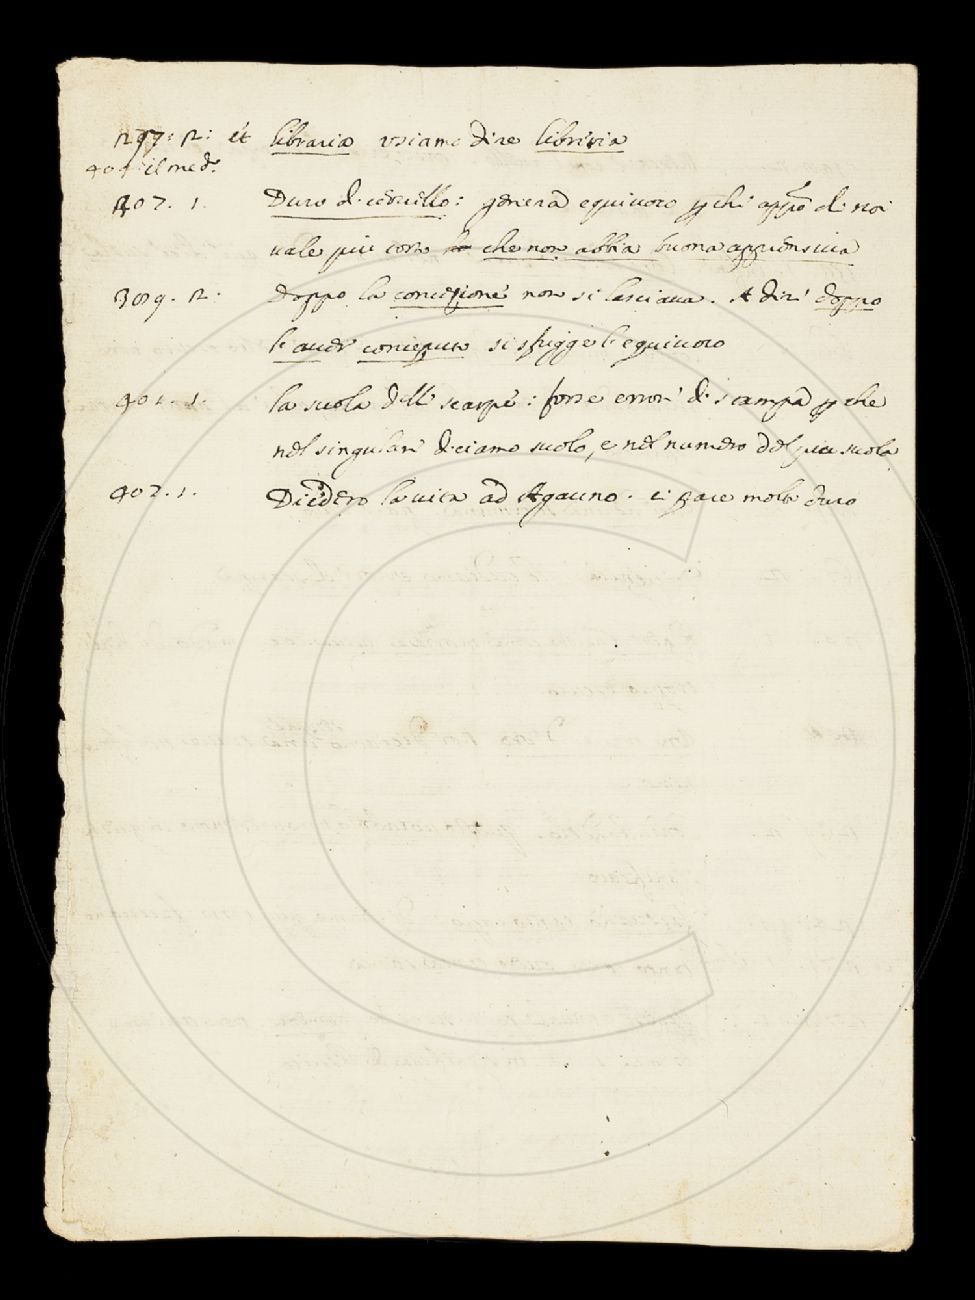 297. 2: et libraria usiamo dire libreria
404 il med.º
407. 1. Duro di cervello: genera equivoco p che appõ di noi
vale più corto che non abbia buona apprensiva
309. 2: doppo la concezione non si lasciava. A dir doppo
l'aver conceputo si sfugge l'equivoco
401. 1. la suola dell scarpe: forse error di stampa p che
nel singulare diciamo suolo, e nel numero del più suola
402. 1. Diedero la vita ad Agauno. ci pare molto duro